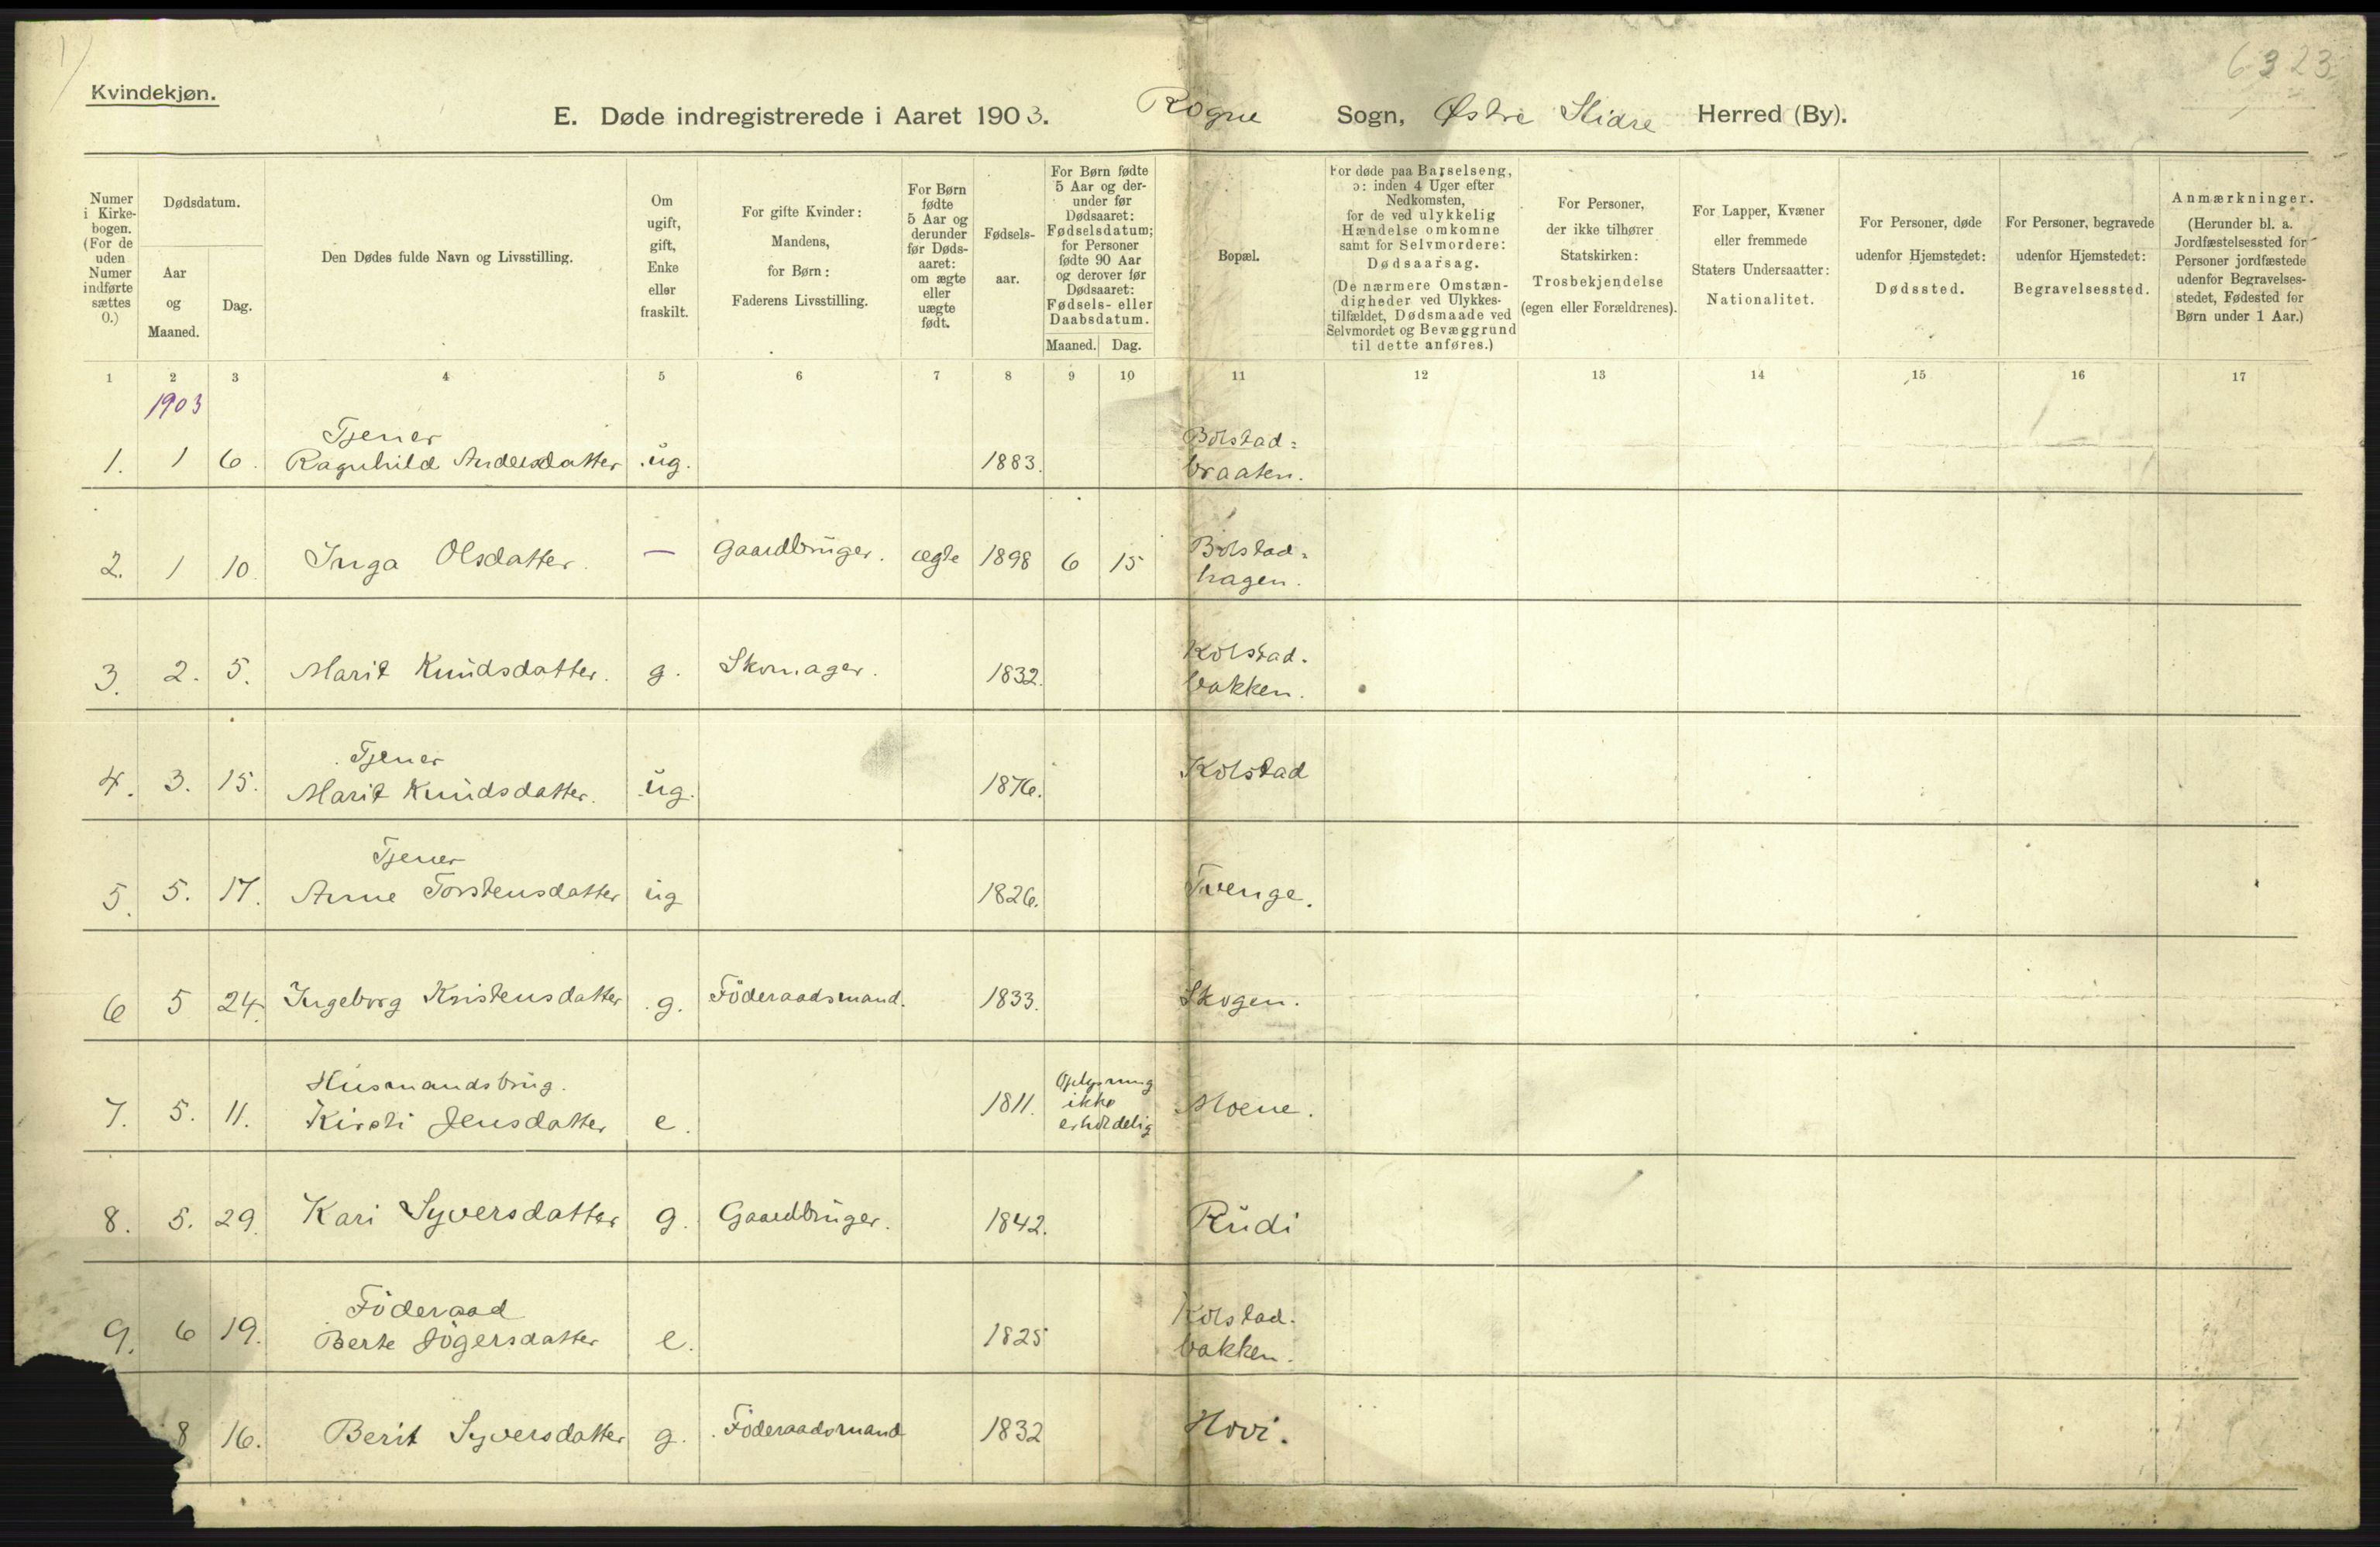 1)
6323
Kvindekjøn.
E. Døde indregistrerede i Aaret 1903. Rogne Sogn, Østre Slidre Herred (By).
Numer i Kirkebogen. (For de uden Numer indførte sættes 0.)
Dødsdatum.
Aar og Maaned.
Dag.
Den Dødes fulde Navn og Livsstilling.
Om ugift, gift, Enke eller fraskilt.
For gifte Kvinder: Mandens, for Børn: Faderens Livsstilling.
For Børn fødte 5 Aar og derunder før Dødsaaret: om ægte eller uægte født.
Fødselsaar.
For Børn fødte 5 Aar og derunder før Dødsaaret: Fødselsdatum; for Personer fødte 90 Aar og derover før Dødsaaret: Fødsels- eller Daabsdatum.
Maaned. Dag.
Bopæl.
For døde paa Barselseng, ɔ: inden 4 Uger efter Nedkomsten, for de ved ulykkelig Hændelse omkomne samt for Selvmordere: Dødsaarsag. (De nærmere Omstændigheder ved Ulykkestilfældet, Dødsmaade ved Selvmordet og Bevæggrund til dette anføres.)
For Personer, der ikke tilhører Statskirken: Trosbekjendelse (egen eller Forældrenes).
For Lapper, Kvæner eller fremmede Staters Undersaatter: Nationalitet.
For Personer, døde udenfor Hjemstedet: Dødssted.
For Personer, begravede udenfor Hjemstedet: Begravelsessted.
Anmærkninger. (Herunder bl. a. Jordfæstelsessted for Personer jordfæstede udenfor Begravelsesstedet, Fødested for Børn under 1 Aar.)
1 2 3 4 5 6 7 8 9 10 11 12 13 14 15 16 17
1903
Tjener Bolstad=
1. 1 6. Ragnhild Andersdatter ug. 1883. braaten.
2. 1 10. Inga Olsdatter. — Gaardbruger. ægte 1898 6 15 Bolstad=
hagen.
Kolstad-
3. 2. 5. Marit Knudsdatter. g. Skomager. 1832. bakken.
Tjener
4. 3. 15. Marit Knudsdatter. ug. 1876. Kolstad
Tjener
5. 5. 17. Anne Torstensdatter ug 1826. Tvenge.
6 5 24. Ingeborg Kristensdatter g. Föderaadsmand. 1833. Skogen.
Husmandsbrug. Oplysning
7. 5. 11. Kirsti Jensdatter e. 1811. ikke Moene.
erholdelig
8. 5. 29. Kari Syversdatter g. Gaardbruger. 1842. Rudi
Föderaad Kolstad-
9. 6 19. Berte Jögersdatter e. 1825 bakken.
8 16. Berit Syversdatter g. Föderaadsmand 1832 Hovi.